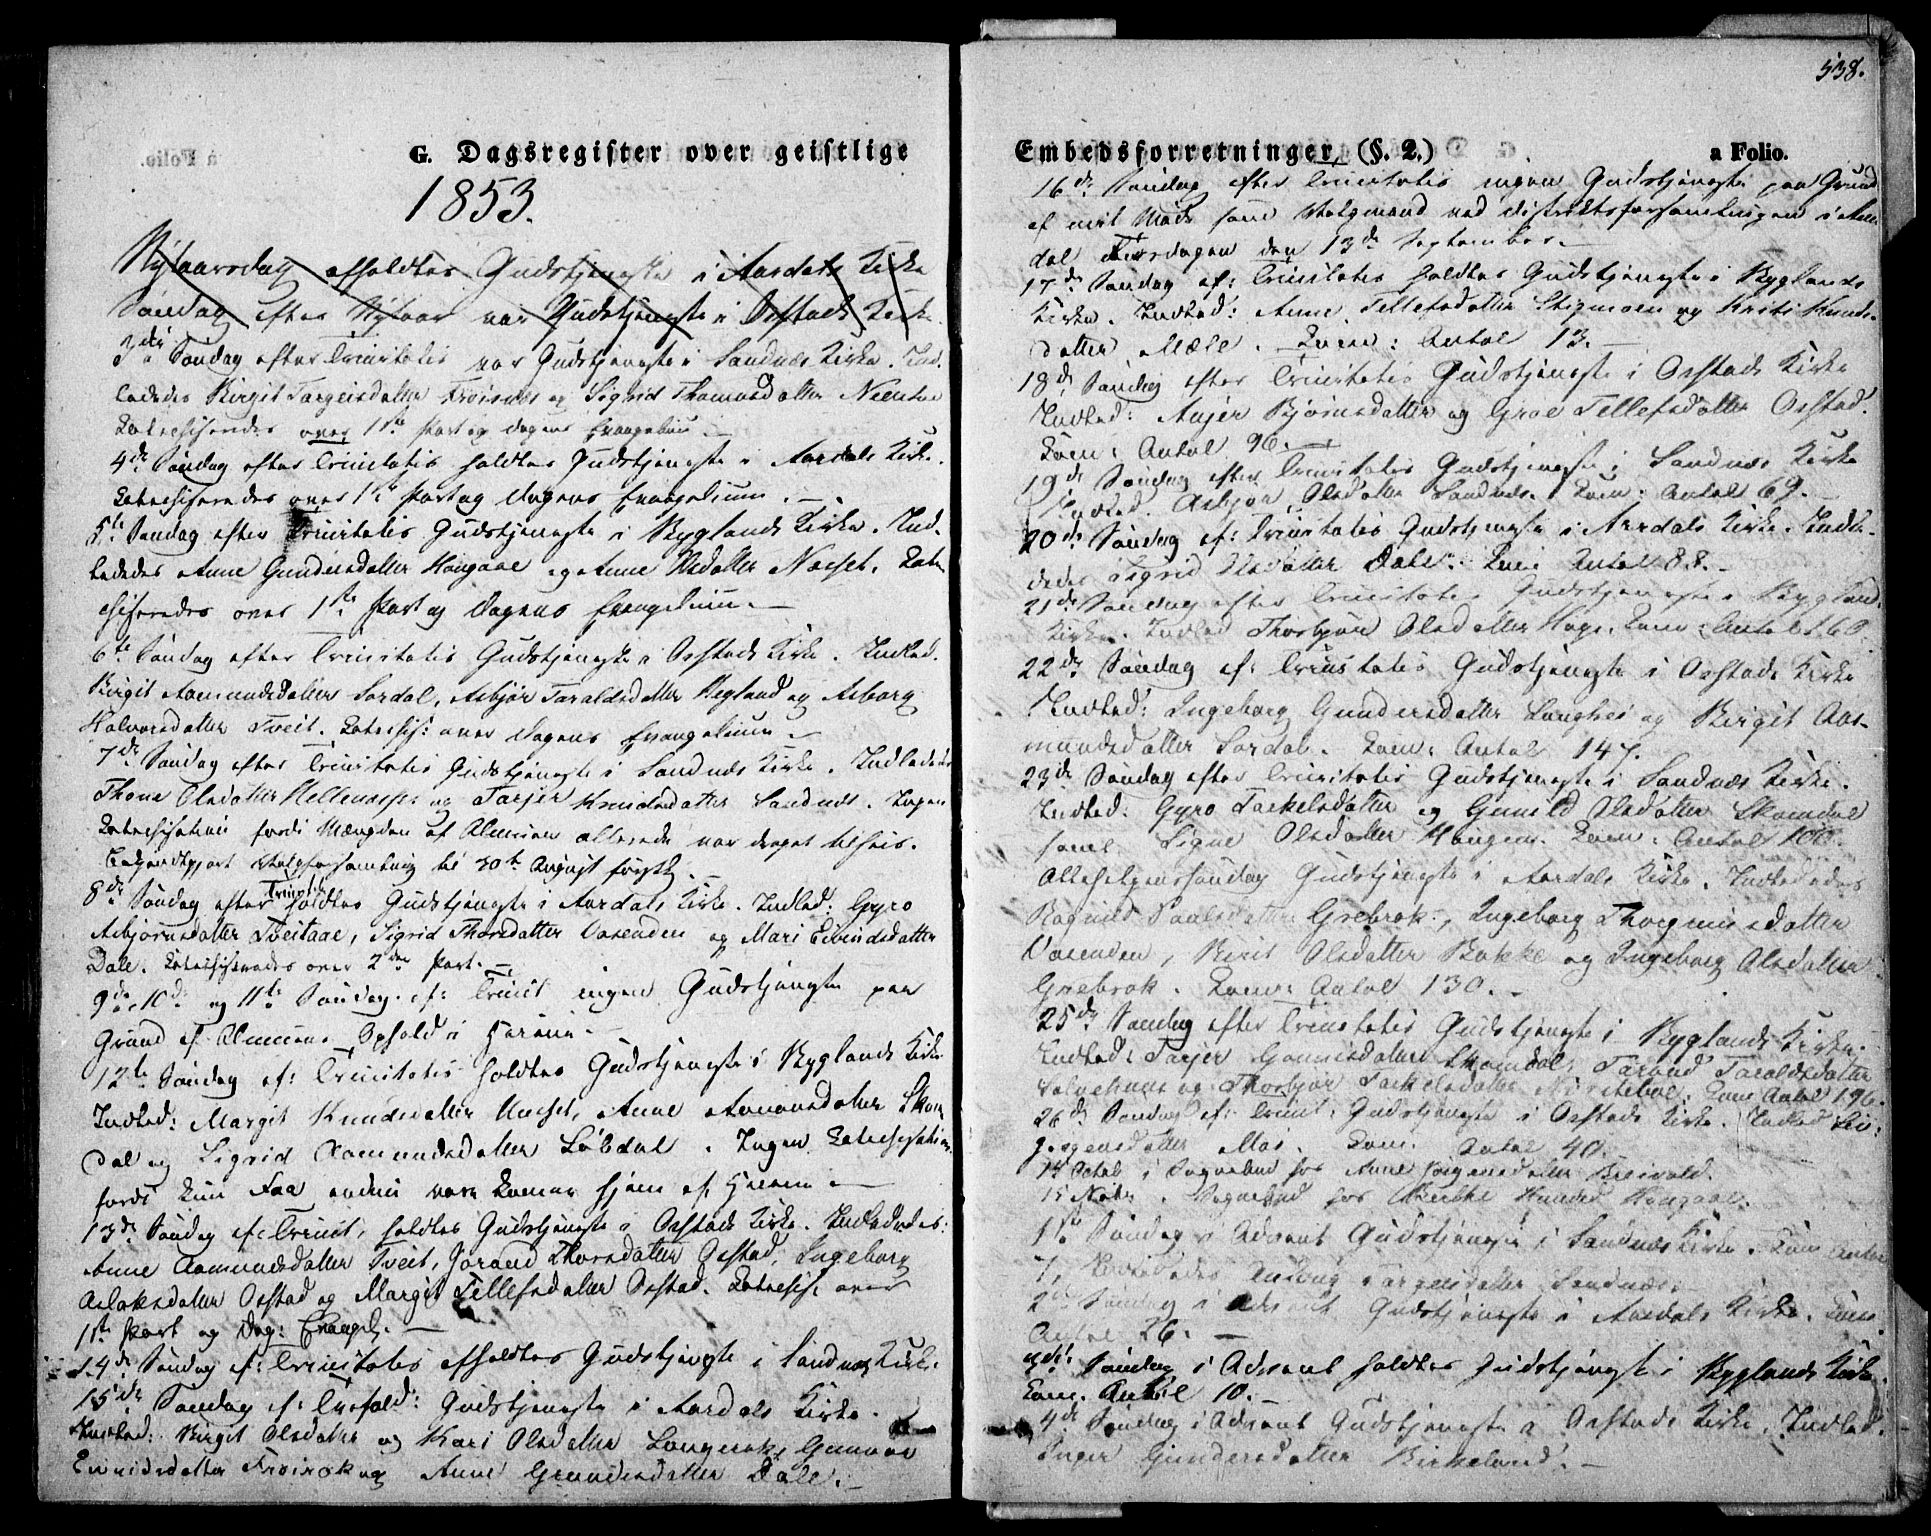 G. Dagsregister over geistlige
1853.
Nytaarsdag afholdtes Gudstjeneste i Aardals Kirke
Søndag efter Nytaar var Gudstjeneste i Ostads Kirke
3die Søndag efter Trinitatis var Gudstjeneste i Sandnæs Kirke. Ind-
ledede Birgit Targeisdatter Frøisnæs og Sigrid Thomasdatter
Catechiseredes over 1ste Part og Dagens Evangelium
4de Søndag efter Trinitatis holdtes Gudstjeneste i Aardals Kirke.
Catechiseredes over 1ste Part og Dagens Evangelium. —
5te Søndag efter Trinitatis Gudstjeneste i Byglands Kirke. Ind-
ledede Anne Gundersdatter Haugaae og Anne Olsdatter Næset. Cate-
chiseredes over 1ste Part og Dagens Evangelium. —
6te Søndag efter Trinitatis Gudstjeneste i Ostads Kirke. Indled.
Birgit Aamundsdatter Sordal, Asbjør Taraldsdatter Hegland og Asborg
Halvorsdatter Tveit. Catechis: over Dagens Evangelium —
7de Søndag efter Trinitatis Gudstjeneste i Sandnæs Kirke. Indledede
Thone Olsdatter og Tarjer Knudsdatter Sandnæs. Ingen
Catechisation fordi Mængden af Almuen allerede var draget tilheis.
Bekjendtgjort Valgforsamling til 30te August
8de Søndag efter Trinitatis holdtes Gudstjeneste i Aardals Kirke. Indled: Gyro
Asbjørnsdatter Tveitaae, Sigrid Thorsdatter Vasenden og Mari Eivindsdatter
Dale. Catechiseredes over 2den Part. —
9de, 10de og 11te Søndag ef: Trinit ingen Gudstjeneste paa
Grund af Almuens Ophold i Heiene —
12te Søndag ef: Trinitatis holdtes Gudstjeneste i Byglands Kirke
Indled: Margit Knudsdatter Næset, Anne Aanonsdatter Skom-
dal og Sigrid Aamundsdatter Løbdal. Ingen Catechisation
fordi kun Faa endnu vare komne hjem af Heiene —
13de Søndag ef: Trinit. holdtes Gudstjeneste i Ostads Kirke. Indledes:
Anne Aamundsdatter Tveit, Jorand Thorsdatter Ostad, Ingeborg
Aslaksdatter Ostad og Margit Tellefsdatter Ostad. Catechis: over
1ste Part og Dag: Evangel. —
14de Søndag ef: Trinitatis afholdtes Gudstjeneste i Sandnæs Kirke
15de Søndag ef: Trefold: Gudstjeneste i Aardals Kirke.
Indled: Birgit Olsdatter og Kari Olsdatter Langerak, Gunvor
Eivindsdatter Frøirak og Anne Gundersdatter Dale. —
538.
Embedsforretninger, (§. 2.) a Folio.
16de Søndag efter Trinitatis ingen Gudstjeneste paa Grund
af mit Møde som Valgmand ved Distriktsforsamlingen i Aren-
dal Tirsdagen den 13de September. —
17de Søndag ef: Trinitatis holdtes Gudstjeneste i Byglands
Kirke. Indled: Anne Tellefsdatter Stigmoen og Kristi Knuds-
datter Mæle. Com: Antal 13. —
18de Søndag efter Trinitatis Gudstjeneste i Ostads Kirke
Indled: Anjer Bjørnsdatter og Groe Tellefsdatter Ostad.
Com: Antal 96. —
19de Søndag efter Trinitatis Gudstjeneste i Sandnæs Kirke
Indled. Asbjør Olsdatter Sandnæs. Com: Antal 69. —
20de Søndag ef: Trinitatis Gudstjeneste i Aardals Kirke. Indle-
dedes Sigrid Olsdatter Dale. Com: Antal 88. —
21de Søndag efter Trinitatis Gudstjeneste i Bygland.
Kirke. Indled Thorbjør Olsdatter Hage. Com: Antal 160.
22de Søndag ef: Trinitatis Gudstjeneste i Ostads Kirke
Indled: Ingeborg Gundersdatter Langhei og Birgit Aas-
mundsdatter Sordal. Com: Antal 147.
23de Søndag efter Trinitatis Gudstjeneste i Sandnæs Kirke.
Indled: Gyro Tarkelsdatter og Gunild Olsdatter Skomdal
samt Signe Olsdatter Haugen. Com: Antal 100.
Allehelgenssøndag Gudstjeneste i Aardals Kirke. Indledes
Ragnild Grebrok, Ingeborg
Vasenden, Berit Olsdatter Bakke og Ingeborg Olsdatter
Grebrok. Com: Antal 130. —
25de Søndag efter Trinitatis Gudstjeneste i Byglands Kirke.
Indled: Tarjer Gunnersdatter Skomdal, Tarand Taraldsdatter
og Thorbjør Tarkelsdatter Com: Antal 196.
26de Søndag ef: Trinit: Gudstjeneste i Ostads Kirke. Indled Liv
Jørgensdatter Moi. Com. Antal 40.
14 Octob i Sognebud for Anne Jørgensdatter Breivold.
15 Novbr. i Sognebud for Haugaae.
1ste Søndag i Advent Gudstjeneste i Sandnæs Kirke. Com Antal
7, Indledes Targeisdatter Sandnæs.
2den Søndag i Advent Gudstjeneste i Aardals Kirke. Com
Antal 26. —
3die Søndag i Advent holdtes Gudstjeneste i Byglands Kirke
Com. Antal 10. —
4de Søndag i Advent Gudstjeneste i Ostads Kirke. Indled.
Inger Gundersdatter Birkeland. —